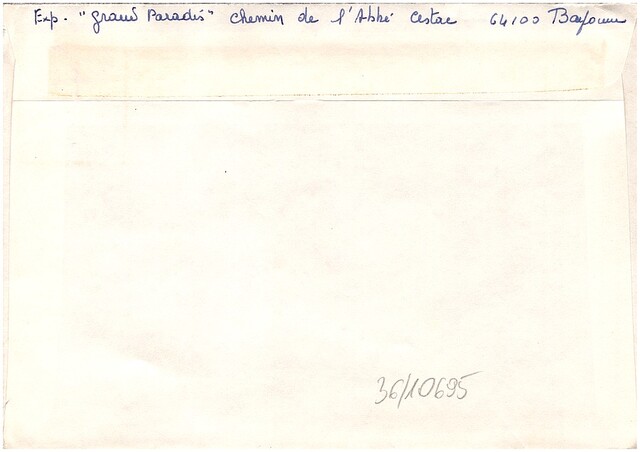 Exp. "Grand Paradis" chemin de l'Abbé Cestac 64100 Bayonne
36/10695